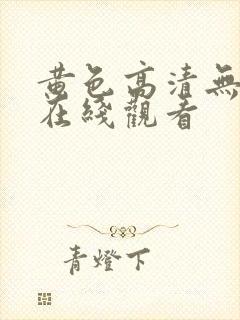 黄色高清無
在綫觀看
青燈下